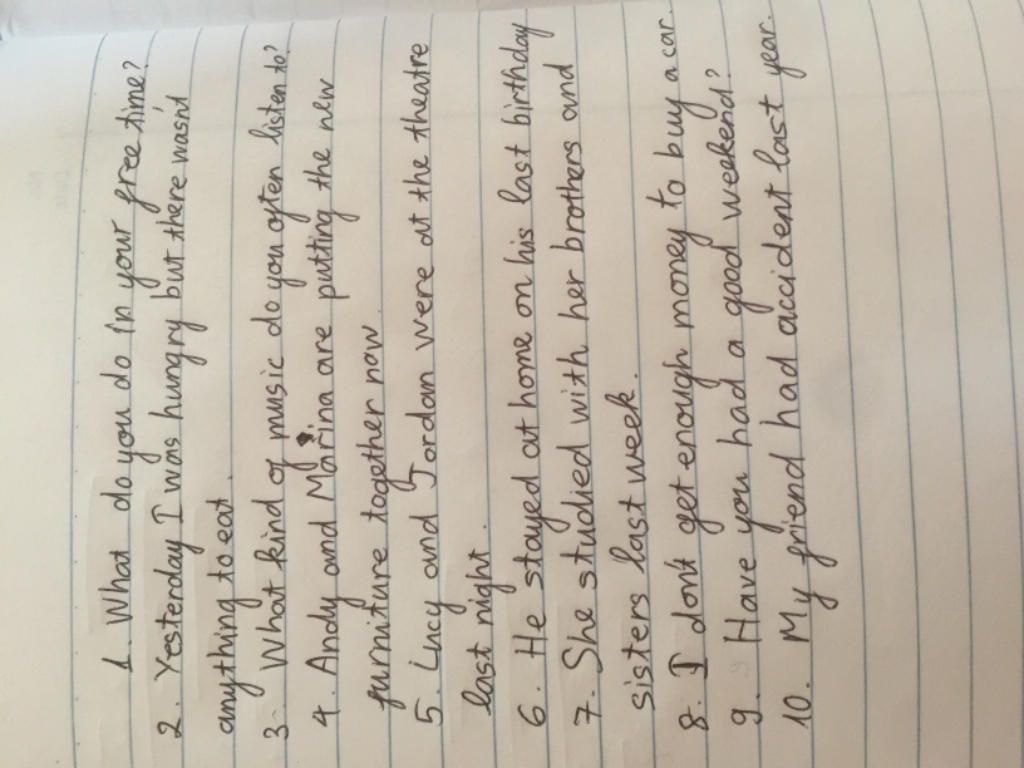 1. What do you do in your free time?
2. Yesterday I was hungry but there wasn't
anything to eat.
3. What kind of music do you often listen to?
4. Andy and Marina are puting the new
furniture together now
5. Lucy and Jordan were at the theatre
last night.
6. He stayed at home on his last birthday
7. She studied with her brothers and
sisters last week.
8. I don't get enough money to buy a car.
9. Have you had a good weekend?
10. My friend had accident last year.